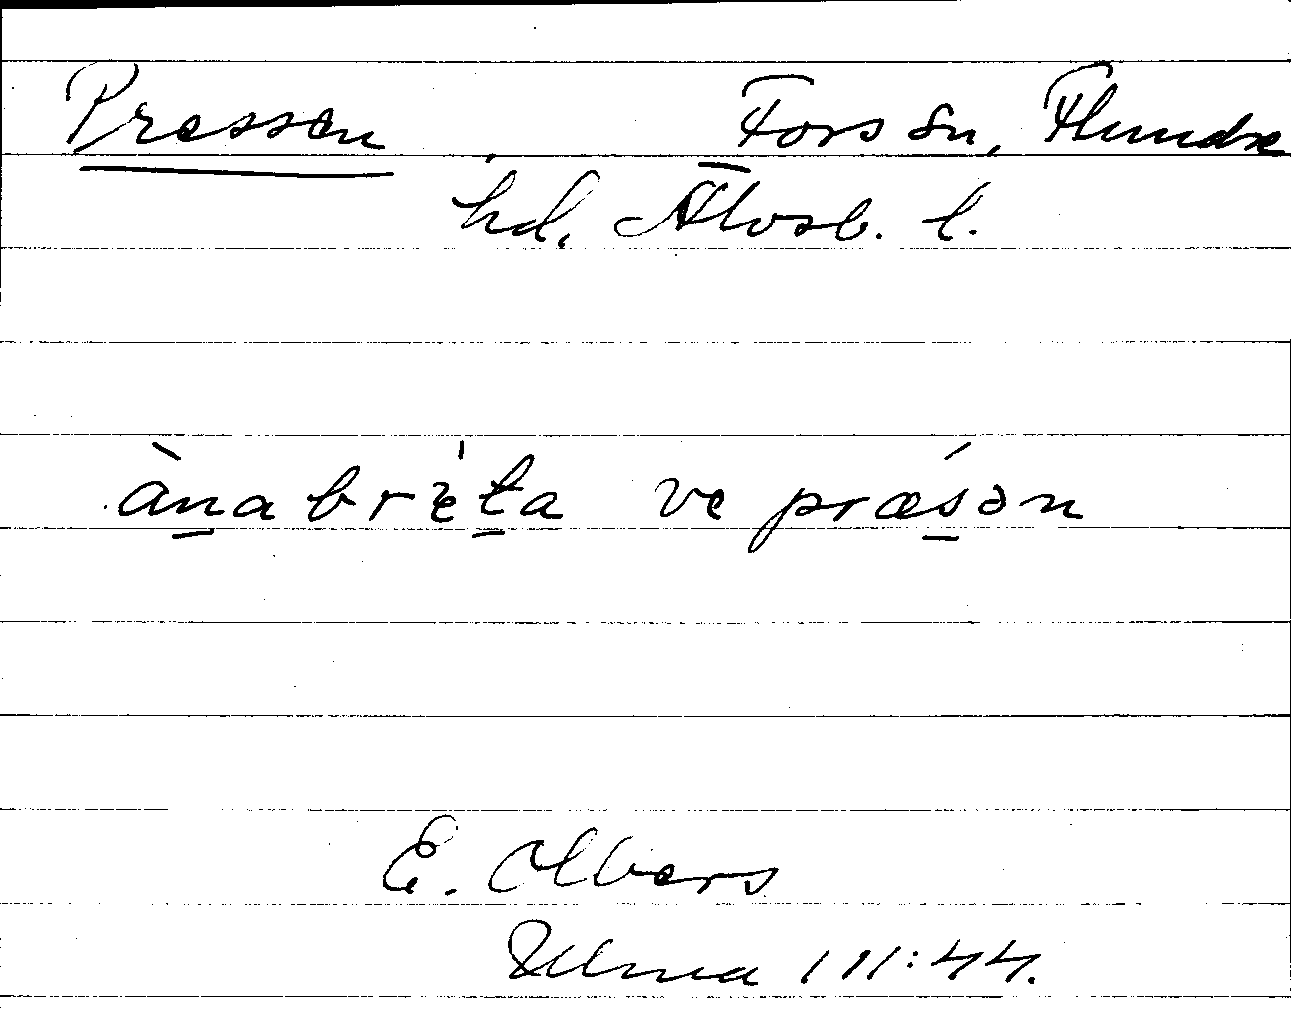 Pressen Fors sn, Flundre
hd. Älvsb. l.
ànabrèta ve prǽsən
E. Olbers
Ulma 111:44.